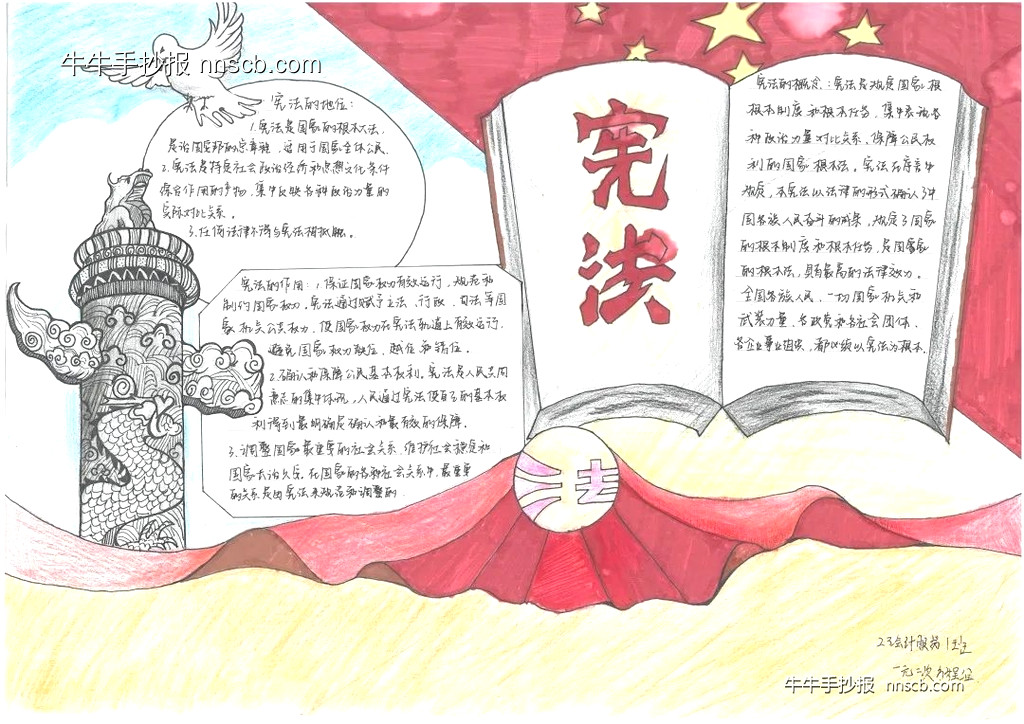 牛牛手抄报 nnscb.com
宪法的地位：
1.宪法是国家的根本大法，
是治国安邦的总章程，适用于国家全体公民。
2.宪法是特定社会政治经济和思想文化条件
综合作用的产物，集中反映各种政治力量的
实际对比关系。
3.任何法律不得与宪法相抵触。
宪法的作用：1.保证国家权力有效运行，规范和
制约国家权力。宪法通过赋予立法、行政、司法等国
家机关公共权力，使国家权力在宪法轨道上有效运行，
避免国家权力缺位、越位和错位。
2.确认和保障公民基本权利。宪法是人民共同
意志的集中体现，人民通过宪法使自己的基本权
利得到最明确定确认和最有效的保障。
3.调整国家最重要的社会关系，维护社会稳定和
国家长治久安。在国家的各种社会关系中，最重要
的关系是由宪法来规范和调整的
宪法
宪法的概念：宪法是规定国家根
根本制度和根本任务，集中表现各
种政治力量对比关系、保障公民权
利的国家根本法。宪法在序言中
规定，本宪法以法律的形式确认了中
国各族人民奋斗的成果，规定了国家
的根本制度和根本任务，是国家
的根本法，具有最高的法律效力。
全国各族人民、一切国家机关和
武装力量、各政党和各社会团体、
各企业事业组织，都必须以宪法为根本
法
会计服务1班
牛牛手抄报 nnscb.com